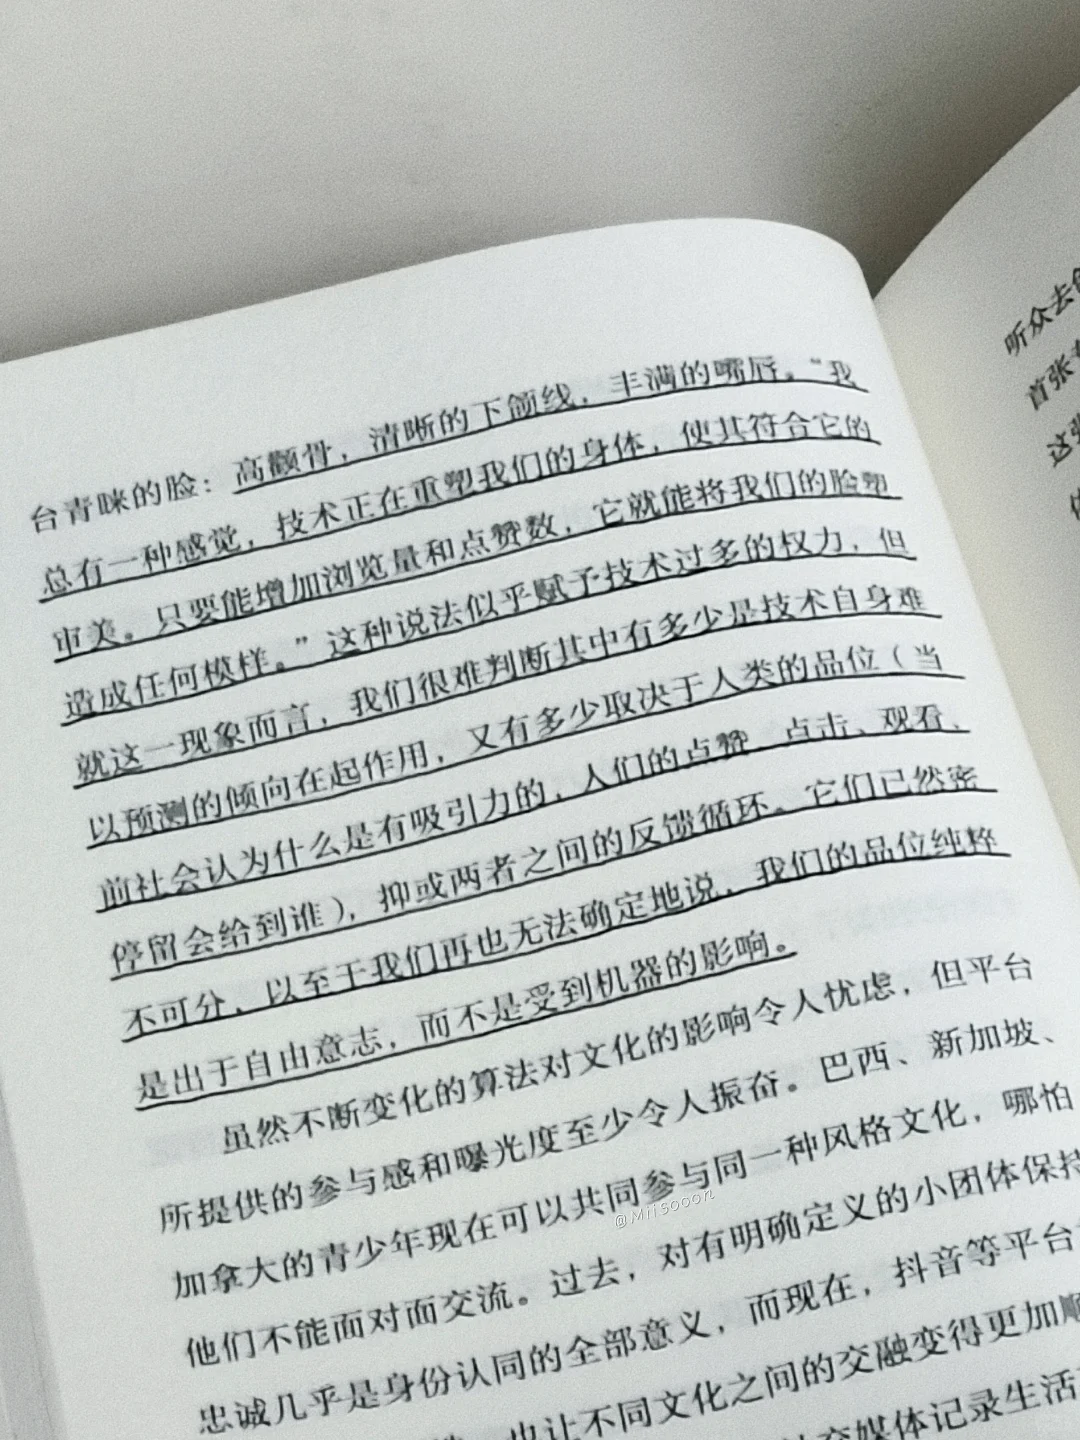 台青睐的脸：高颧骨，清晰的下颌线，丰满的嘴唇。“我
总有一种感觉，技术正在重塑我们的身体，使其符合它的
审美。只要能增加浏览量和点赞数，它就能将我们的脸塑
造成任何模样。”这种说法似乎赋予技术过多的权力，但
就这一现象而言，我们很难判断其中有多少是技术自身难
以预测的倾向在起作用，又有多少取决于人类的品位（当
前社会认为什么是有吸引力的，人们的点赞、点击、观看、
停留会给到谁），抑或两者之间的反馈循环。它们已然密
不可分，以至于我们再也无法确定地说，我们的品位纯粹
是出于自由意志，而不是受到机器的影响。
虽然不断变化的算法对文化的影响令人忧虑，但平台
所提供的参与感和曝光度至少令人振奋。巴西、新加坡、
加拿大的青少年现在可以共同参与同一种风格文化，哪怕
他们不能面对面交流。过去，对有明确定义的小团体保持
忠诚几乎是身份认同的全部意义，而现在，抖音等平台
也让不同文化之间的交融变得更加顺
交媒体记录生活
@Miisooon
听众去
首张
这张